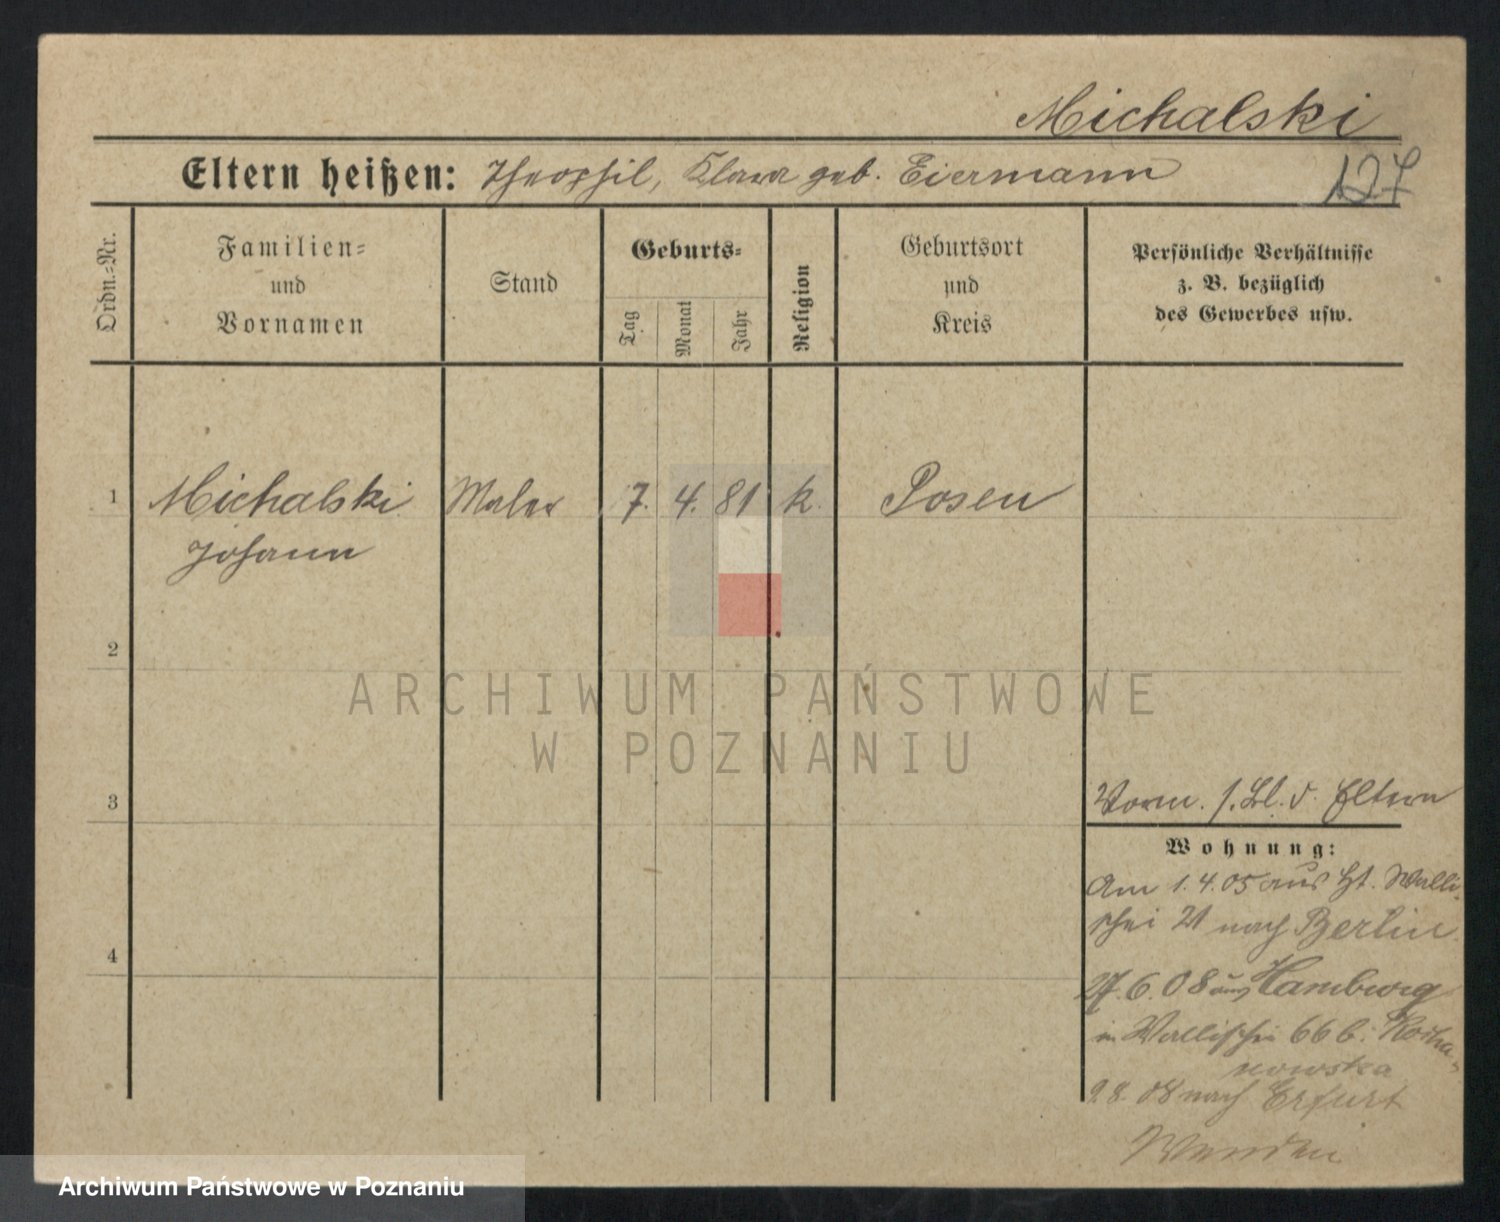 Michalski
Eltern heißen: Theophil, Klara geb. Eiermann
127
Ordn.=Nr.
Familien=
und
Vornamen
Stand
Geburts=
Tag
Monat
Jahr
Religion
Geburtsort
und
Kreis
Persönliche Verhältnisse
z. B. bezüglich
des Gewerbes usw.
1 Michalski Maler 7. 4. 81 k. Posen
Johann
2
ARCHIWUM PAŃSTWOWE
W POZNANIU
3
Vorm. s. Bl. d. Eltern
Wohnung:
Am 1.4.05 aus Walli-
schei nach Berlin.
4
27.6.08 aus Hamburg
in Wallischei 66 b. Kocha-
nowska
9.8.08 nach Erfurt
Archiwum Państwowe w Poznaniu